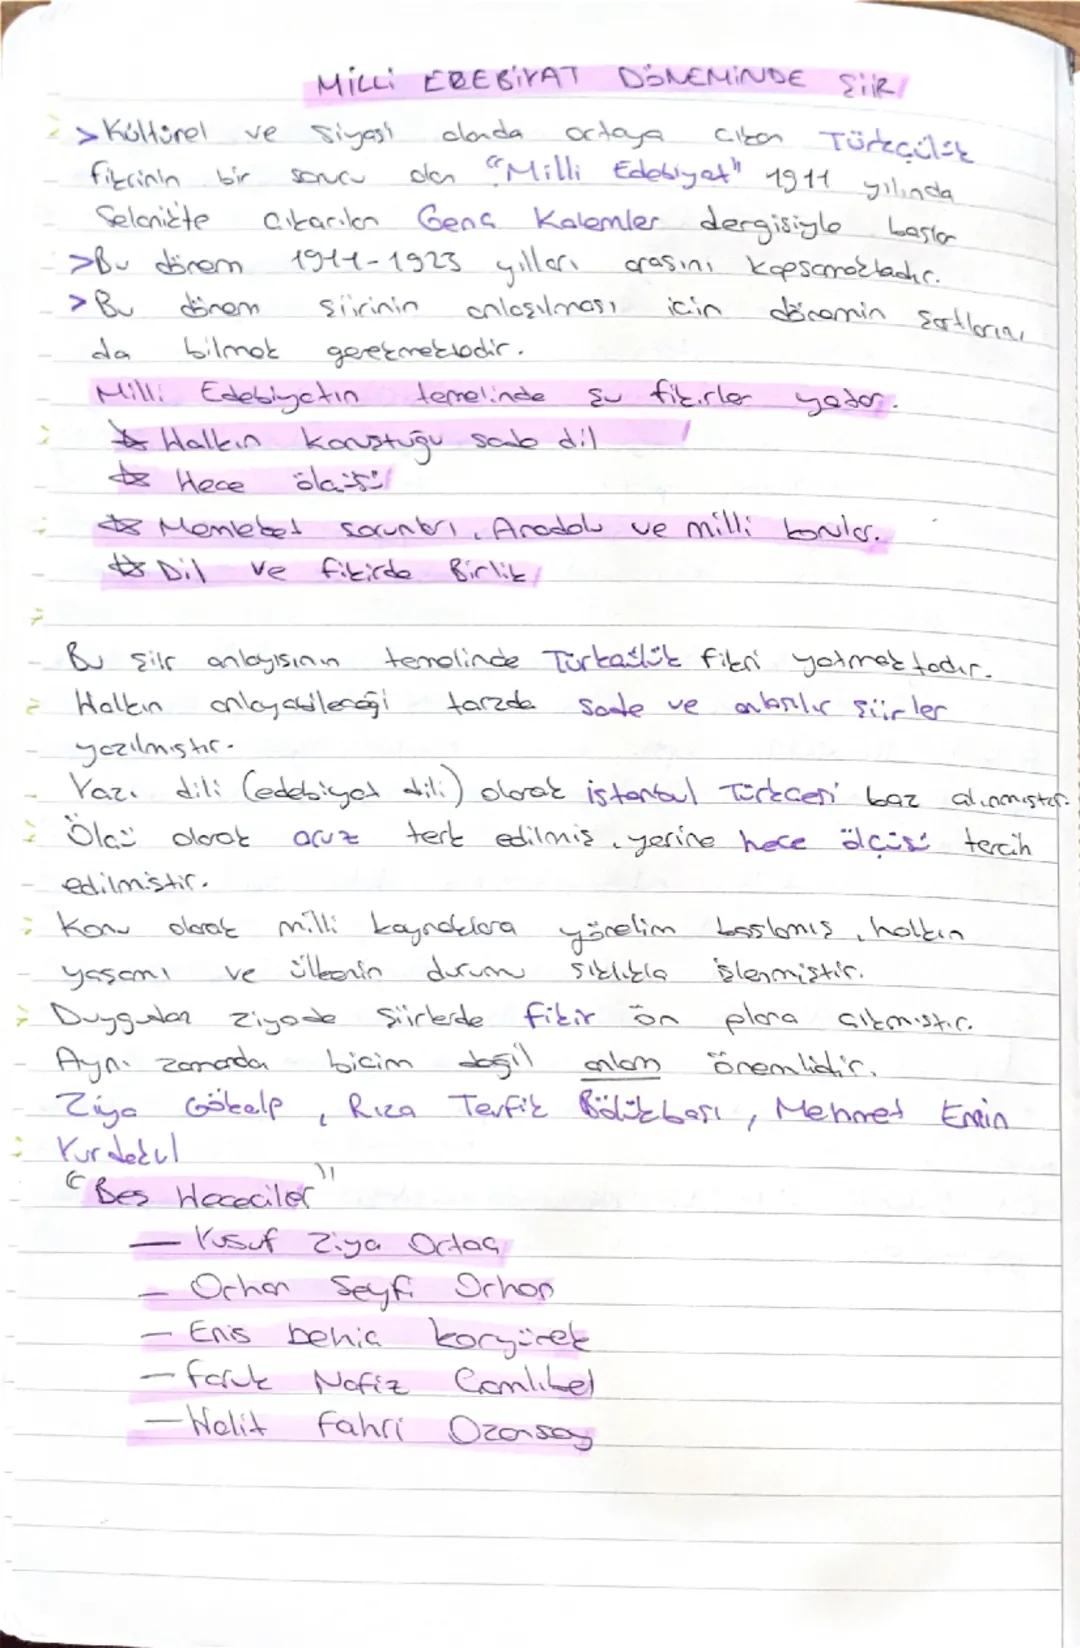 MİLLİ EDEBİYAT DÖNEMİNDE ŞİİR
> Kültürel ve siyasi alanda ortaya çıkan Türkçülük
fikrinin bir sonucu olan "Milli Edebiyat" 1911 yılında
Selanikte çıkarılan Genç Kalemler dergisiyle başlar
>Bu dönem 1911-1923 yılları arasını kapsamaktadır.
> Bu dönem şiirinin anlaşılması için dönemin şartlarını
da bilmek gerekmektedir.
Milli Edebiyatın temelinde şu fikirler yatar.
☆ Halkın konuştuğu sade dil
☆ Hece ölçüsü
☆ Memleket sorunları, Anadolu ve milli konular.
☆ Dil ve fikirde Birlik
Bu şiir anlayışının temelinde Türkçülük fikri yatmaktadır.
Halkın anlayabileceği tarzda sade ve anlaşılır şiirler
yazılmıştır.
Yazı dili (edebiyat dili) olarak istanbul Türkçesi baz alınmıştır.
Ölçü olarak aruz terk edilmiş, yerine hece ölçüsü tercih
edilmiştir.
Konu olarak milli kaynaklara yönelim başlamış, halkın
yaşamı ve ülkenin durumu sıklıkla işlenmiştir.
Duygudan ziyade şiirlerde fikir ön plana çıkmıştır.
Aynı zamanda biçim değil anlam önemlidir.
Ziya Gökalp, Rıza Tevfik Bölükbaşı, Mehmet Emin
Yurdakul
"Beş Hececiler"
— Yusuf Ziya Ortaç
— Orhan Seyfi Orhon
— Enis behiç koryürek
— faruk Nafiz Çamlıbel
— Halit fahri Ozansoy